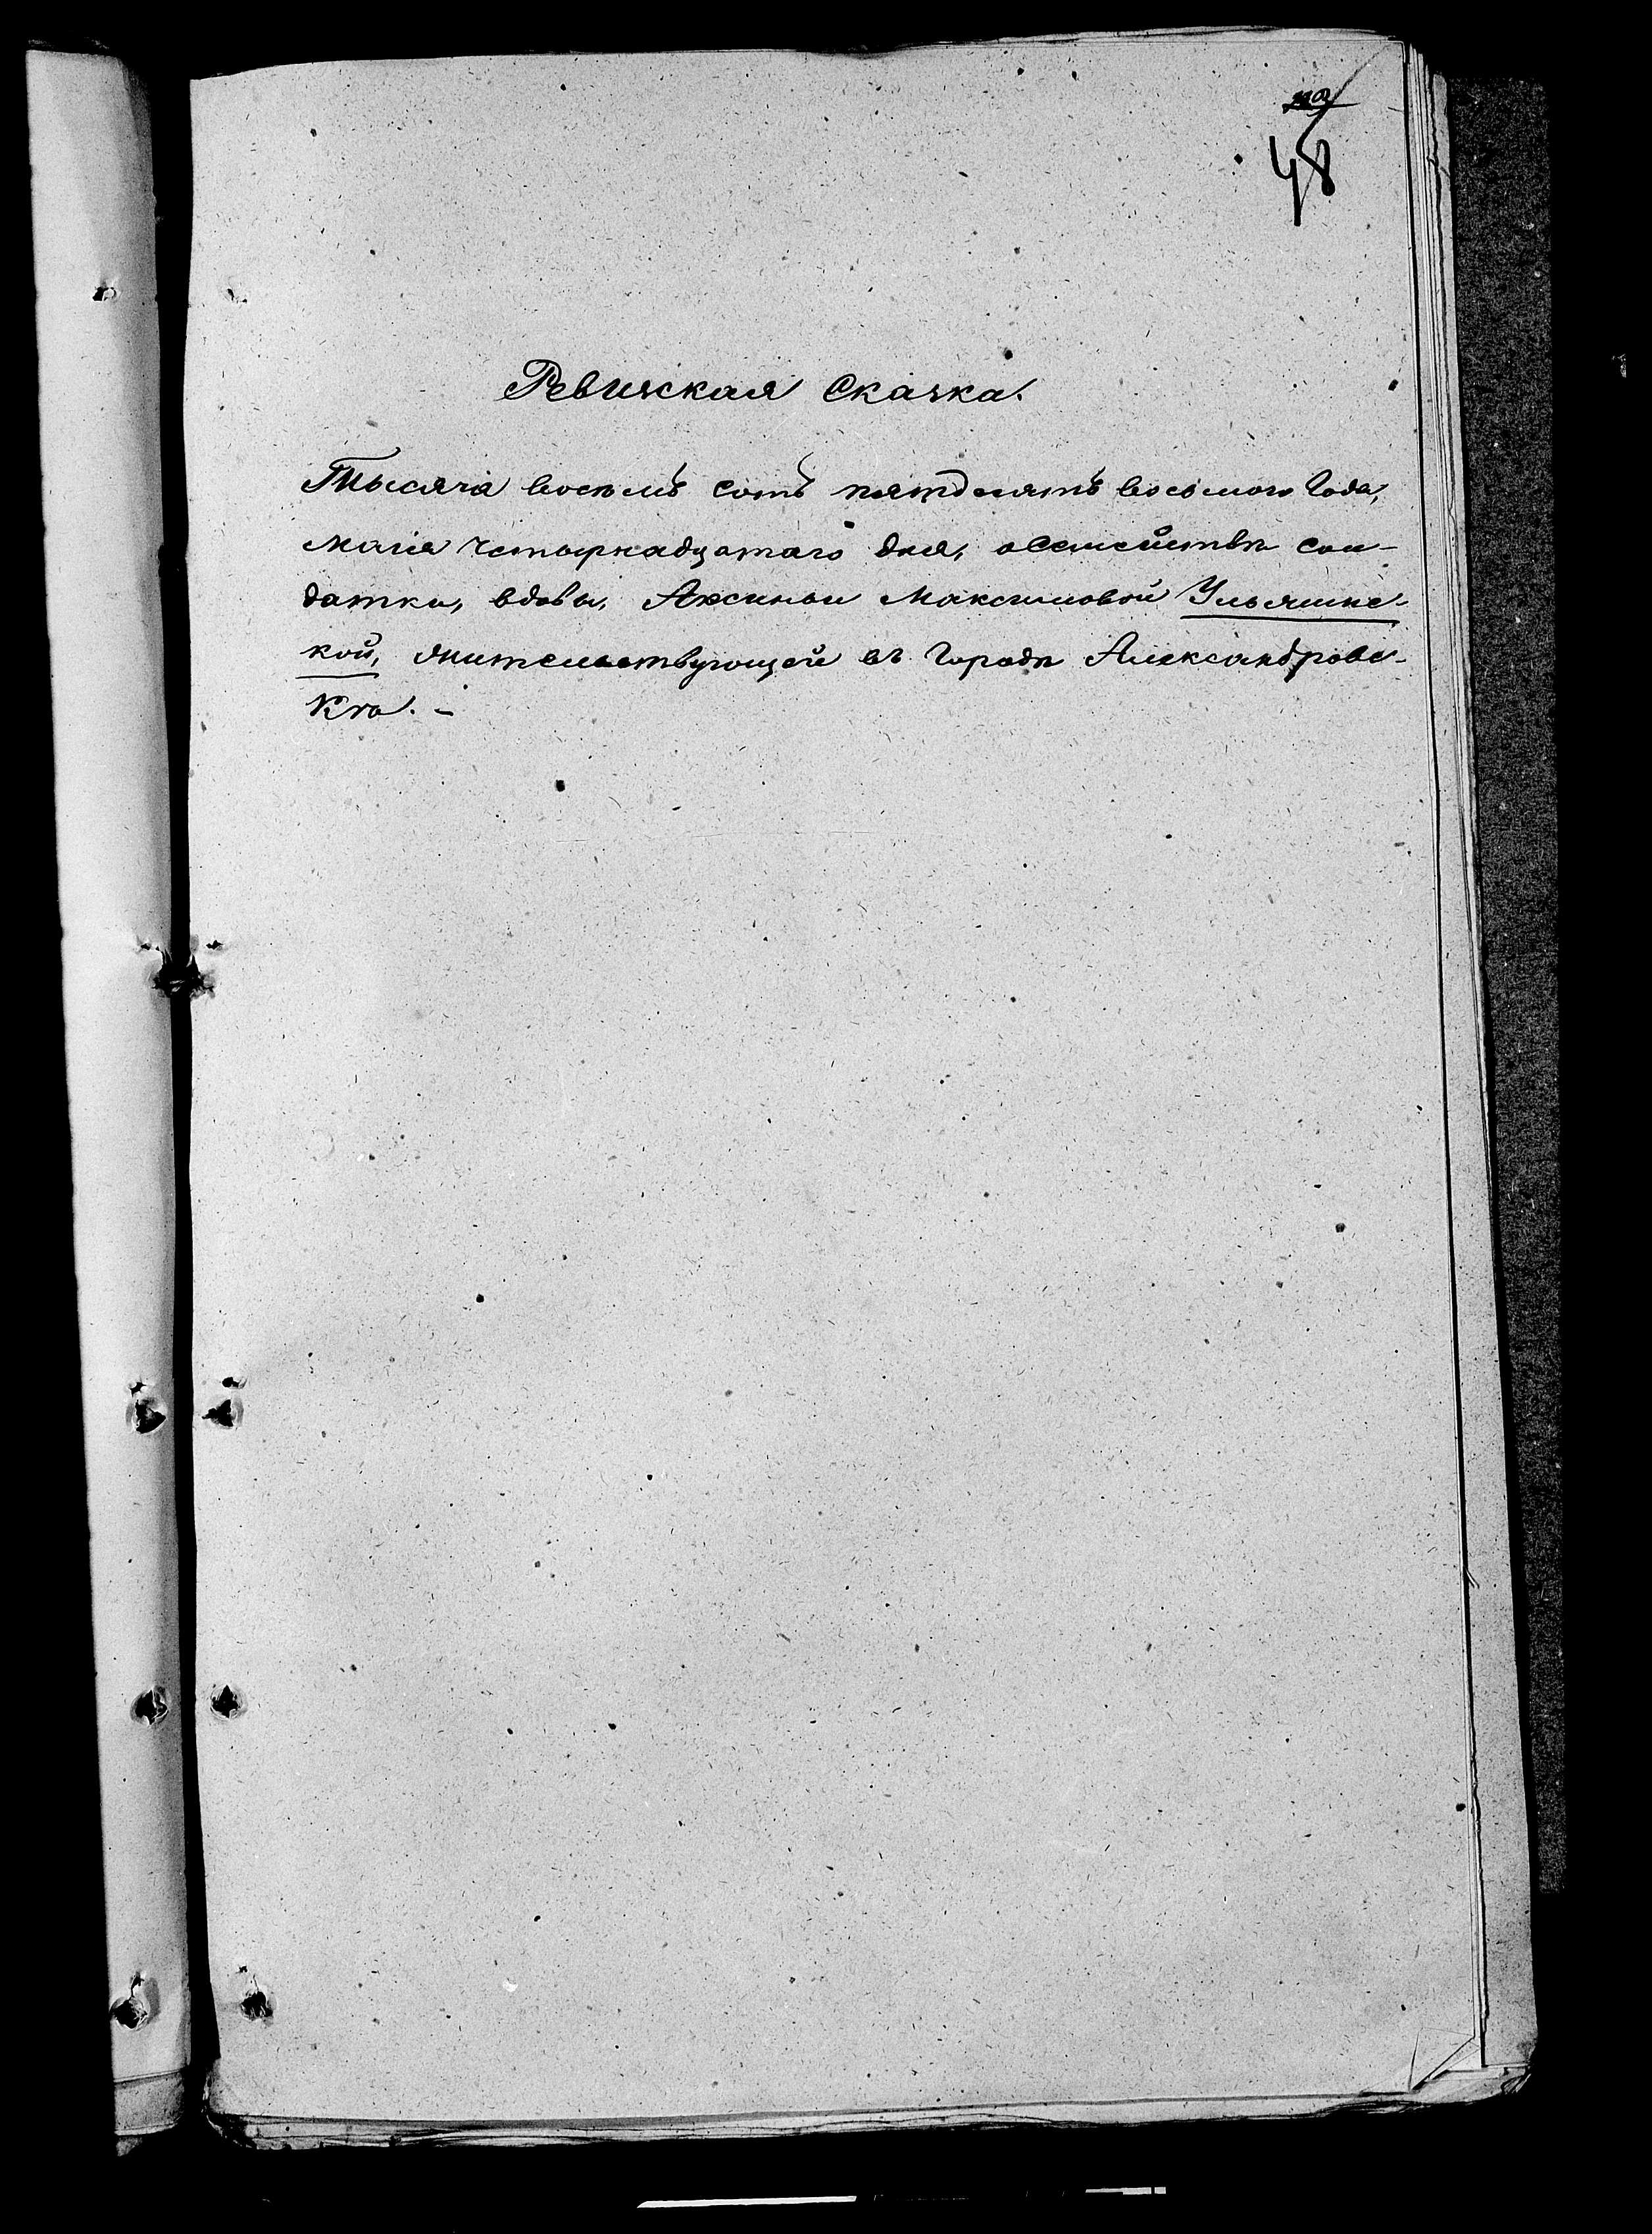 48
Ревижская Сказка.
Тысяча восемь сотъ пятдесятъ восьмого Года,
маія четырнадцатаго дня, о семействѣ сол-
датки, вдовы, Аксиньи Максимовой Ульяшис-
кой, жительствующей въ Городѣ Александровс-
кѣ. -